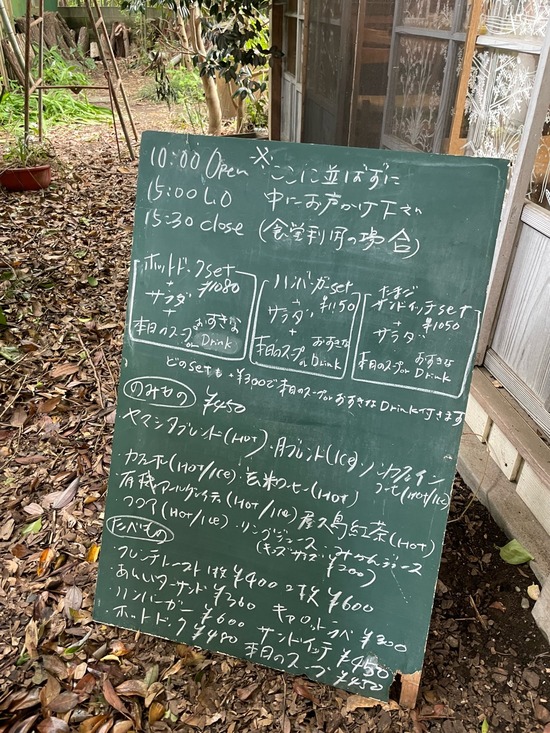 10:00 Open ※ここに並ばずに
15:00 L.O 中にお声かけ下さい
15:30 close (食堂利用の場合)
ホットドックset ¥1080
+
サラダ
+
本日のスープ or おすきな Drink
ハンバーガーset ¥1150
+
サラダ
+
本日のスープ or おすきな Drink
たまごサンドイッチset ¥1050
+
サラダ
本日のスープ or おすきな Drink
どのsetも+¥300で本日のスープ or おすきなDrink付きます
のみもの ¥450
ブレンド(HOT)・月ブレンド(ICE)・ノンカフェインコーヒー(HOT/ICE)
・カフェオーレ(HOT/ICE)・玄米コーヒー(HOT)
・有機アールグレイティ(HOT/ICE)・屋久島紅茶(HOT)
・ココア(HOT/ICE)・リンゴジュース・みかんジュース
(キッズサイズ ¥200)
たべもの
・フレンチトースト1枚¥400 2枚¥600
・サンド¥360 キャロットラペ¥300
・ハンバーガー¥600 サンドイッチ¥450
・ホットドック¥480 本日のスープ¥450